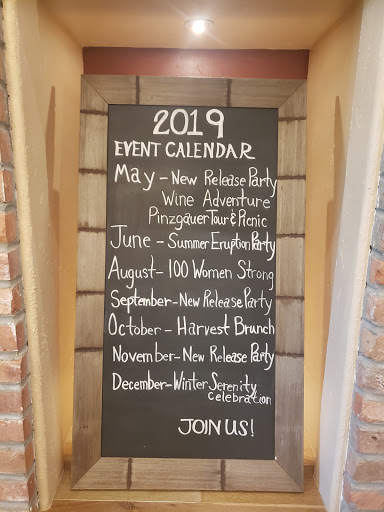 2019
EVENT CALENDAR
May - New Release Party
Wine Adventure
Pinzgauer Tour & Picnic
June - Summer Eruption Party
August - 100 Women Strong
September - New Release Party
October - Harvest Brunch
November - New Release Party
December - Winter Serenity
celebration
JOIN US!